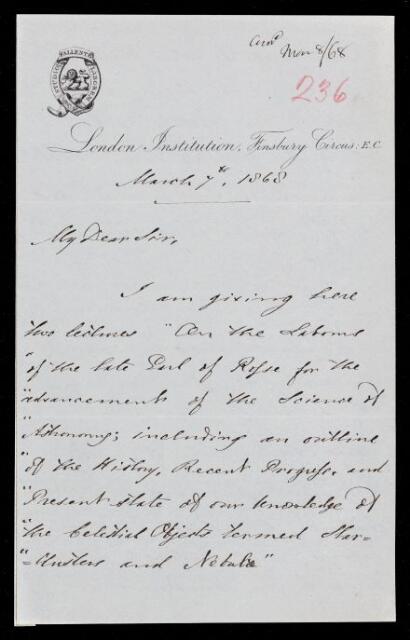 Ansd Mar 8/68
236
London Institution, Finsbury Circus: E.C.
March 7th, 1868
My Dear Sir,
I am giving here
two lectures "On the Labours
"of the late Earl of Rosse for the
"advancement of the Science of
"Astronomy; including an outline
"of the History, Recent Progress, and
"Present state of our knowledge of
"the Celestial Objects termed Star-
"-Clusters and Nebulæ"